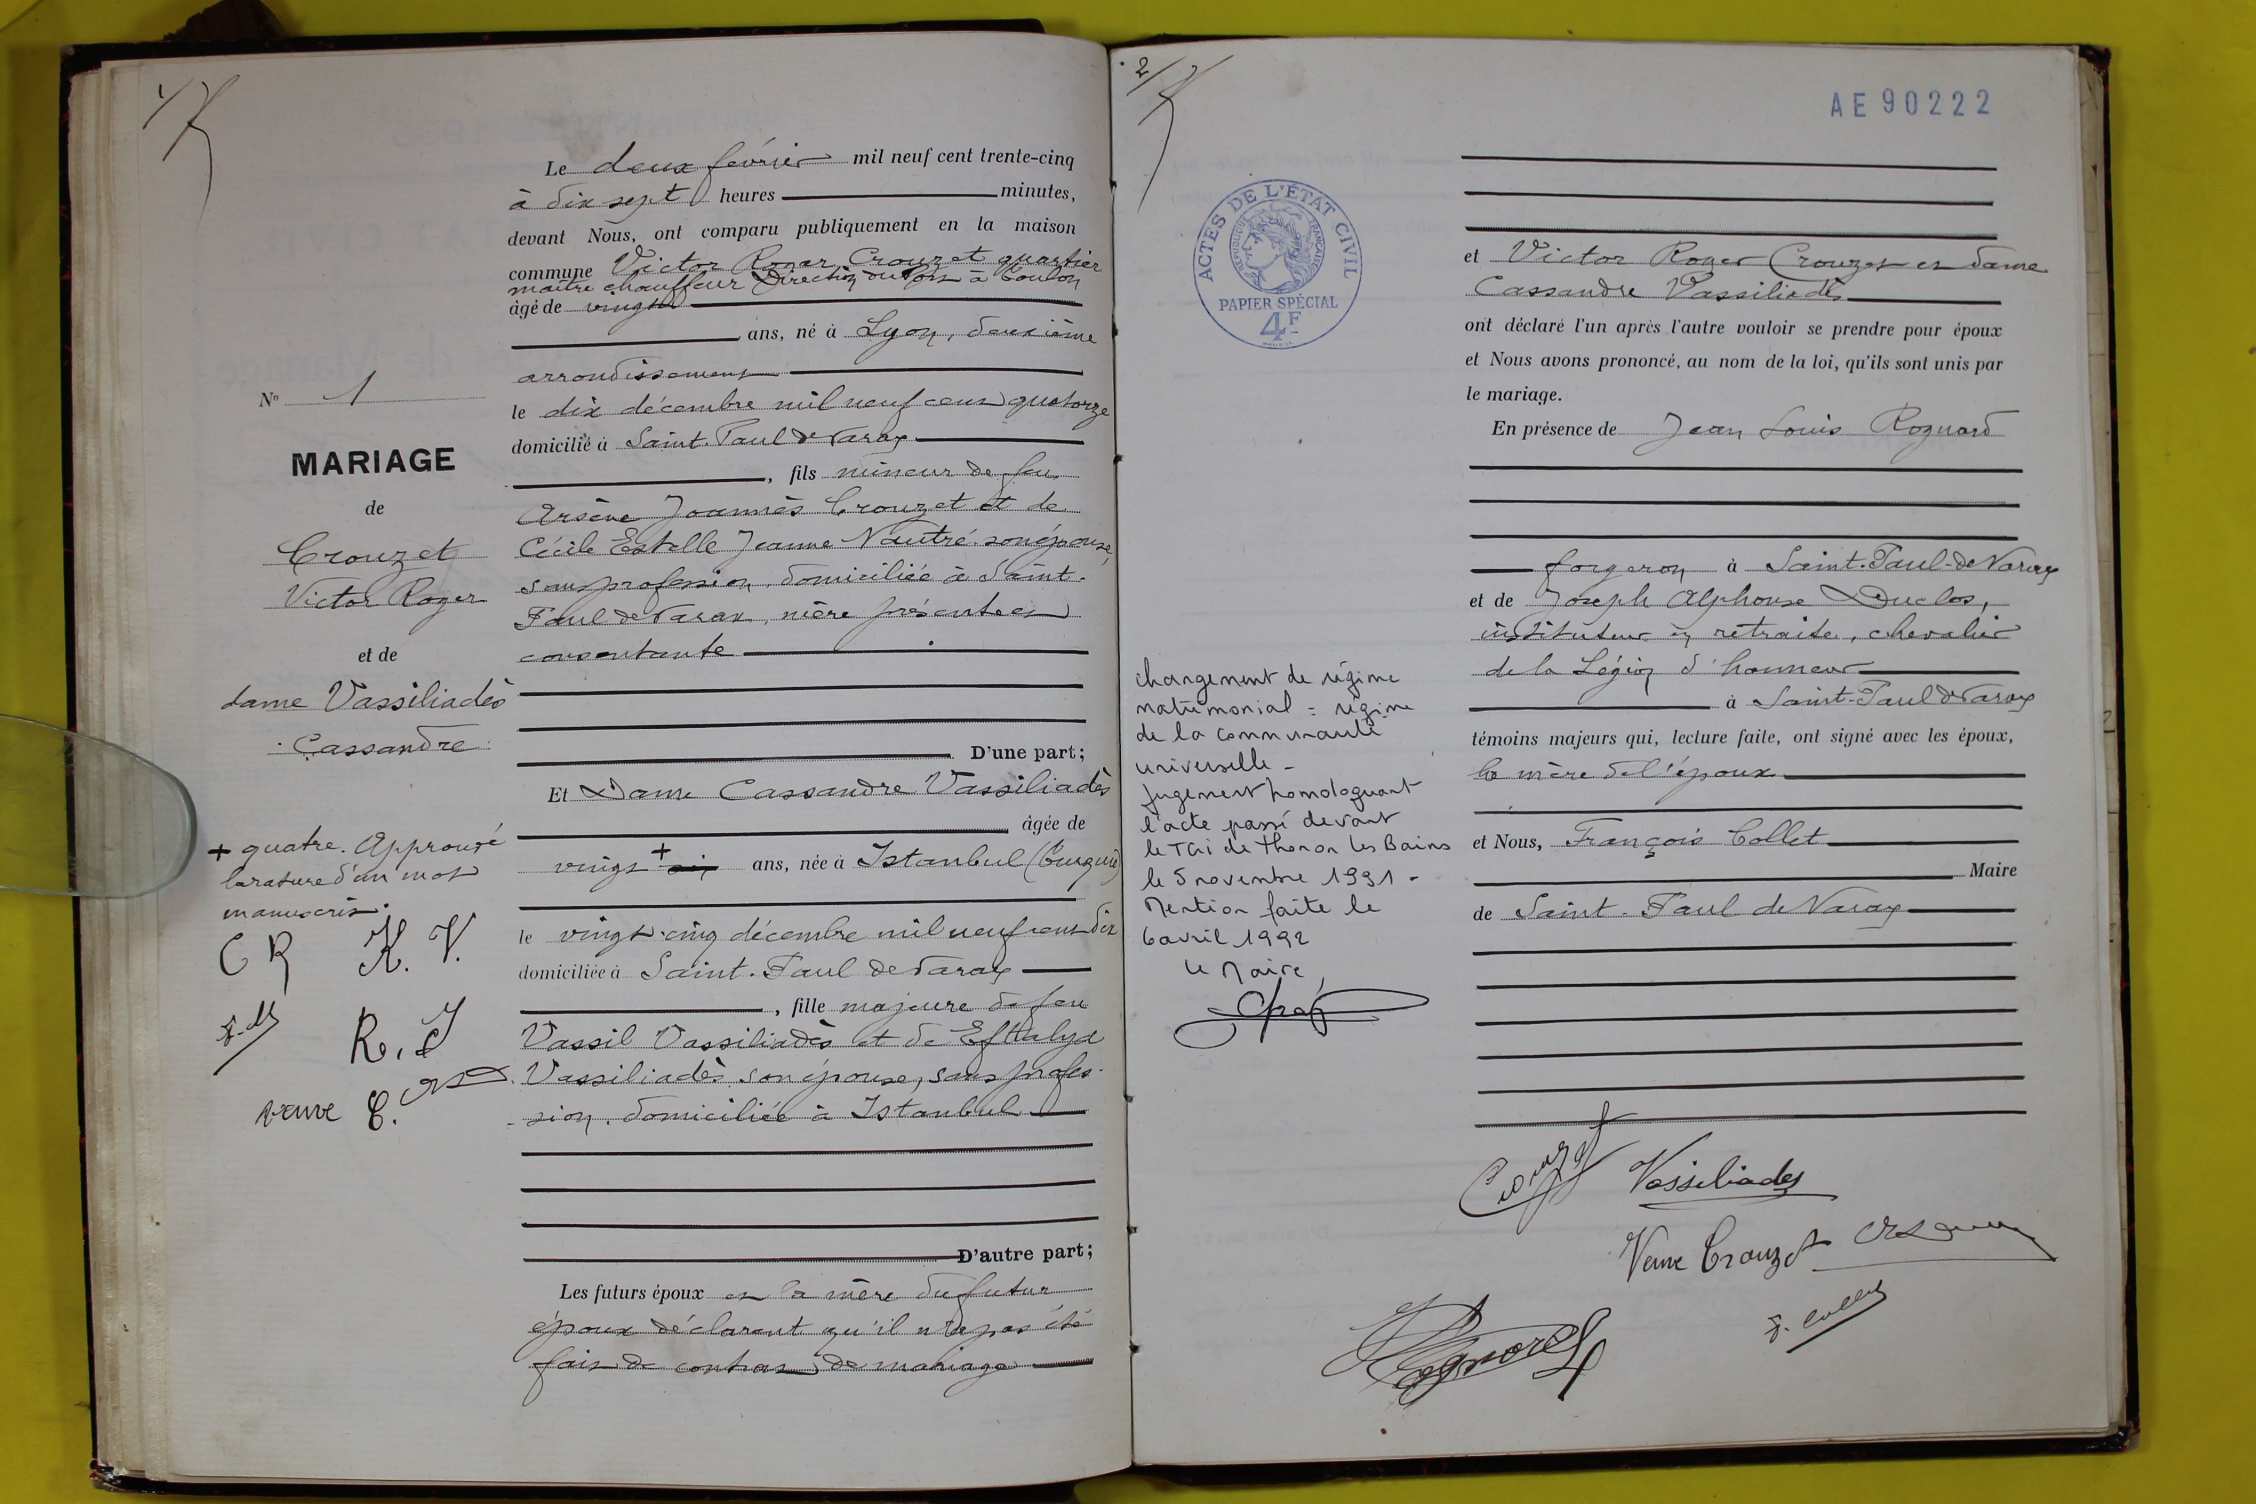 1/
Le deux février mil neuf cent trente-cinq
à dix sept heures minutes,
devant Nous, ont comparu publiquement en la maison
commune Victor Roger Crouzet quartier
maître chauffeur Direction du Port à Toulon
âgé de vingt
ans, né à Lyon, deuxième
arrondissement
le dix décembre mil neuf cent quatorze
domicilié à Saint-Paul de Varax
, fils mineur de feu
Arsène Joannès Crouzet et de
Cécile Estelle Jeanne Nautré son épouse,
sans profession, domiciliée à Saint-
Paul de Varax, mère présente et
consentante
D'une part;
Et Dame Cassandre Vassiliadès
âgée de
vingt + six ans, née à Istanbul (Turquie)
le vingt-cinq décembre mil neuf cent dix
domiciliée à Saint-Paul de Varax
, fille majeure de feu
Vassil Vassiliadès et de Efthalya
Vassiliadès son épouse, sans profes-
sion, domiciliée à Istanbul
D'autre part;
Les futurs époux et la mère du futur
époux déclarent qu'il n'a pas été
fait de contrat de mariage
No 1
MARIAGE
de
Crouzet
Victor Roger
et de
dame Vassiliadès
Cassandre
+ quatre. Approuvé
la rature d'un mot
manuscrit.
C R K. V.
R. J
veuve C.
2/
AE 90222
ACTES DE L'ÉTAT CIVIL
RÉPUBLIQUE FRANÇAISE
PAPIER SPÉCIAL
4F
et Victor Roger Crouzet et dame
Cassandre Vassiliadès
ont déclaré l'un après l'autre vouloir se prendre pour époux
et Nous avons prononcé, au nom de la loi, qu'ils sont unis par
le mariage.
En présence de Jean Louis Rognard
forgeron à Saint-Paul-de Varax
et de Joseph Alphonse Duclos,
instituteur en retraite, chevalier
de la Légion d'honneur
à Saint-Paul de Varax
témoins majeurs qui, lecture faite, ont signé avec les époux,
la mère de l'époux
et Nous, François Collet
Maire
de Saint-Paul de Varax
changement de régime
matrimonial = régime
de la communauté
universelle -
jugement homologuant
l'acte passé devant
le TGI de Thonon les Bains
le 5 novembre 1991 -
Mention faite le
6 avril 1992
Le Maire,
Crouzet
Vassiliades
Veuve Crouzet
F. Collet
Rognard